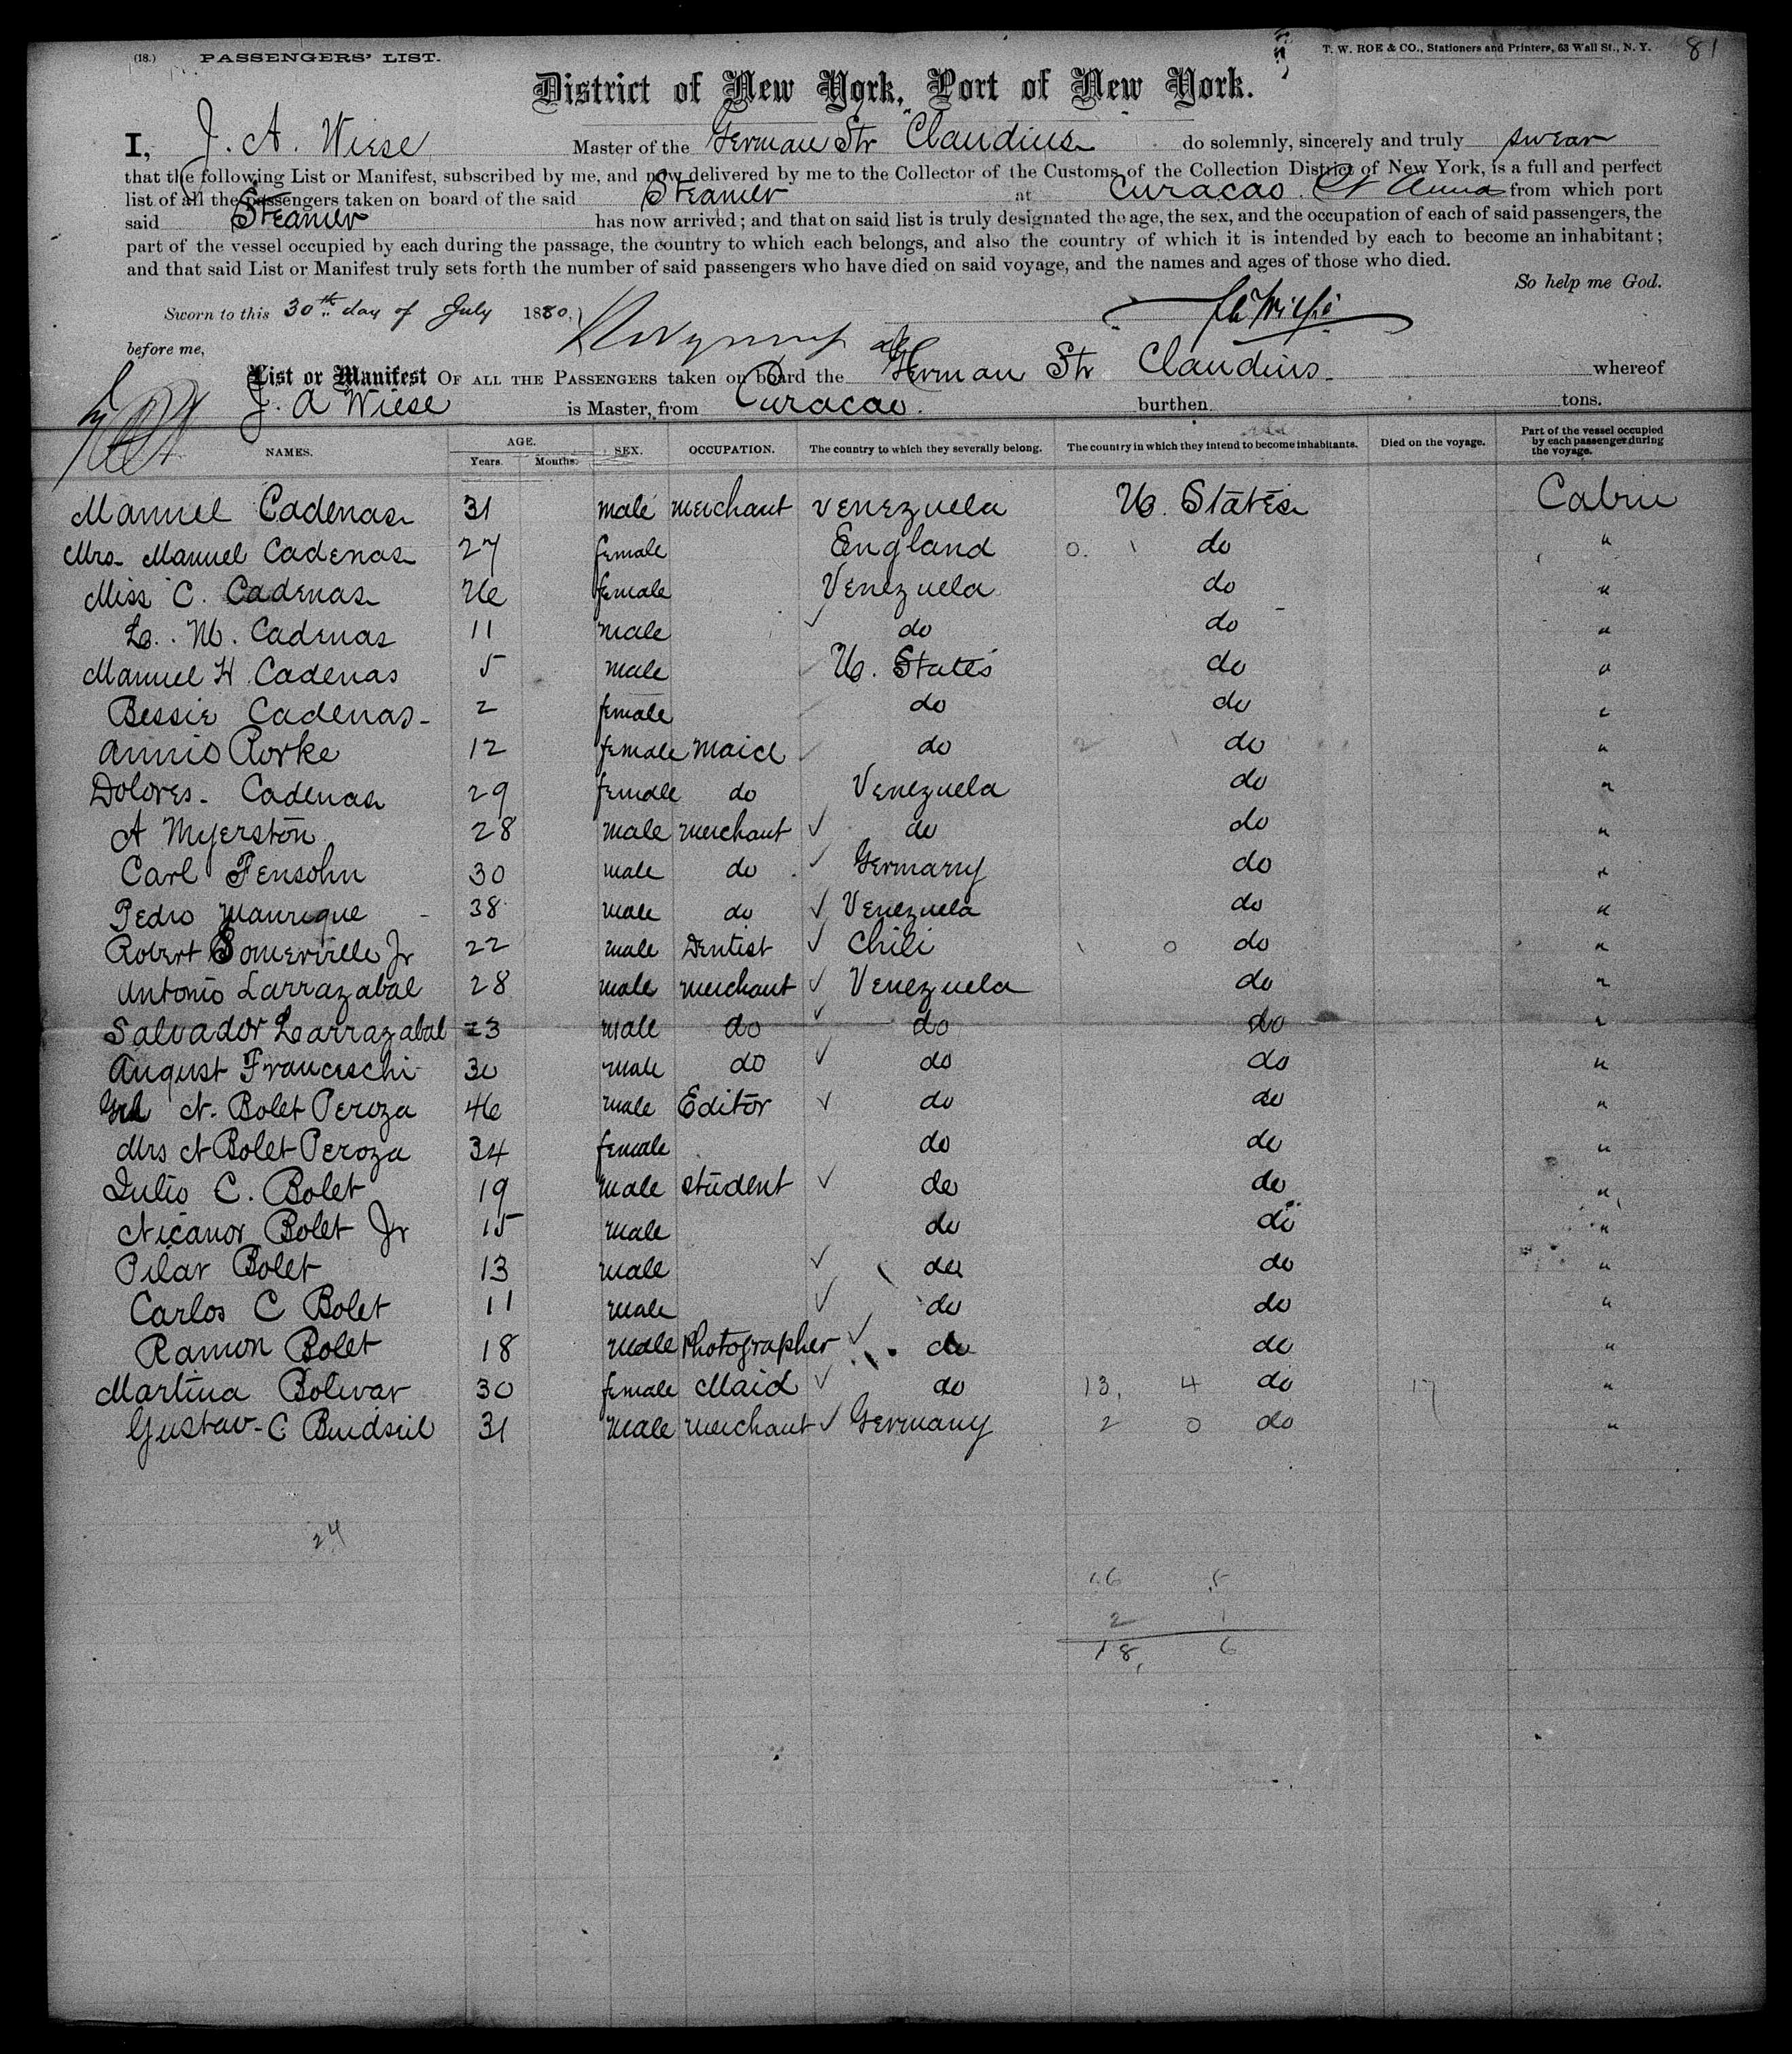 (18.) PASSENGERS' LIST. T. W. ROE & CO., Stationers and Printers, 63 Wall St., N. Y. 81
District of New York, Port of New York.
I, J. A. Wiese Master of the German Str Claudius do solemnly, sincerely and truly swear
that the following List or Manifest, subscribed by me, and now delivered by me to the Collector of the Customs of the Collection District of New York, is a full and perfect
list of all the passengers taken on board of the said Steamer at Curacao. St Anna from which port
said Steamer has now arrived; and that on said list is truly designated the age, the sex, and the occupation of each of said passengers, the
part of the vessel occupied by each during the passage, the country to which each belongs, and also the country of which it is intended by each to become an inhabitant;
and that said List or Manifest truly sets forth the number of said passengers who have died on said voyage, and the names and ages of those who died.
So help me God.
Sworn to this 30th day of July 1880,
before me,
List or Manifest OF ALL THE PASSENGERS taken on board the German Str Claudius. whereof
J. A Wiese is Master, from Curacao. burthen tons.
NAMES. AGE. Years. Months. SEX. OCCUPATION. The country to which they severally belong. The country in which they intend to become inhabitants. Died on the voyage. Part of the vessel occupied by each passenger during the voyage.
Manuel Cadenas 31 male merchant Venezuela U. States Cabin
Mrs. Manuel Cadenas 27 female England 0. 1 do "
Miss C. Cadenas 26 female Venezuela do "
L. M. Cadenas 11 male ✓ do do "
Manuel H. Cadenas 5 male U. States do "
Bessie Cadenas 2 female do do "
Annie Rorke 12 female Maid do 2 1 do "
Dolores. Cadenas 29 female do Venezuela do "
A Myerston 28 male merchant ✓ do do "
Carl Fensohn 30 male do ✓ Germany do "
Pedro Manrique 38 male do ✓ Venezuela do "
Robert Somerville Jr 22 male Dentist ✓ Chili 1 0 do "
Antonio Larrazabal 28 male merchant ✓ Venezuela do "
Salvador Larrazabal 23 male do ✓ do do "
August Franceschi 30 male do ✓ do do "
N. Bolet Peroza 46 male Editor ✓ do do "
Mrs N Bolet Peroza 34 female do do "
Julio C. Bolet 19 male student ✓ do do "
Nicanor Bolet Jr 15 male do do "
Pilar Bolet 13 male ✓ do do "
Carlos C Bolet 11 male ✓ do do "
Ramon Bolet 18 male Photographer ✓ do do "
Martina Bolivar 30 female Maid ✓ do 13, 4 do 17 "
Gustav C 31 male merchant ✓ Germany 2 0 do "
24
16 5
2 1
18, 6